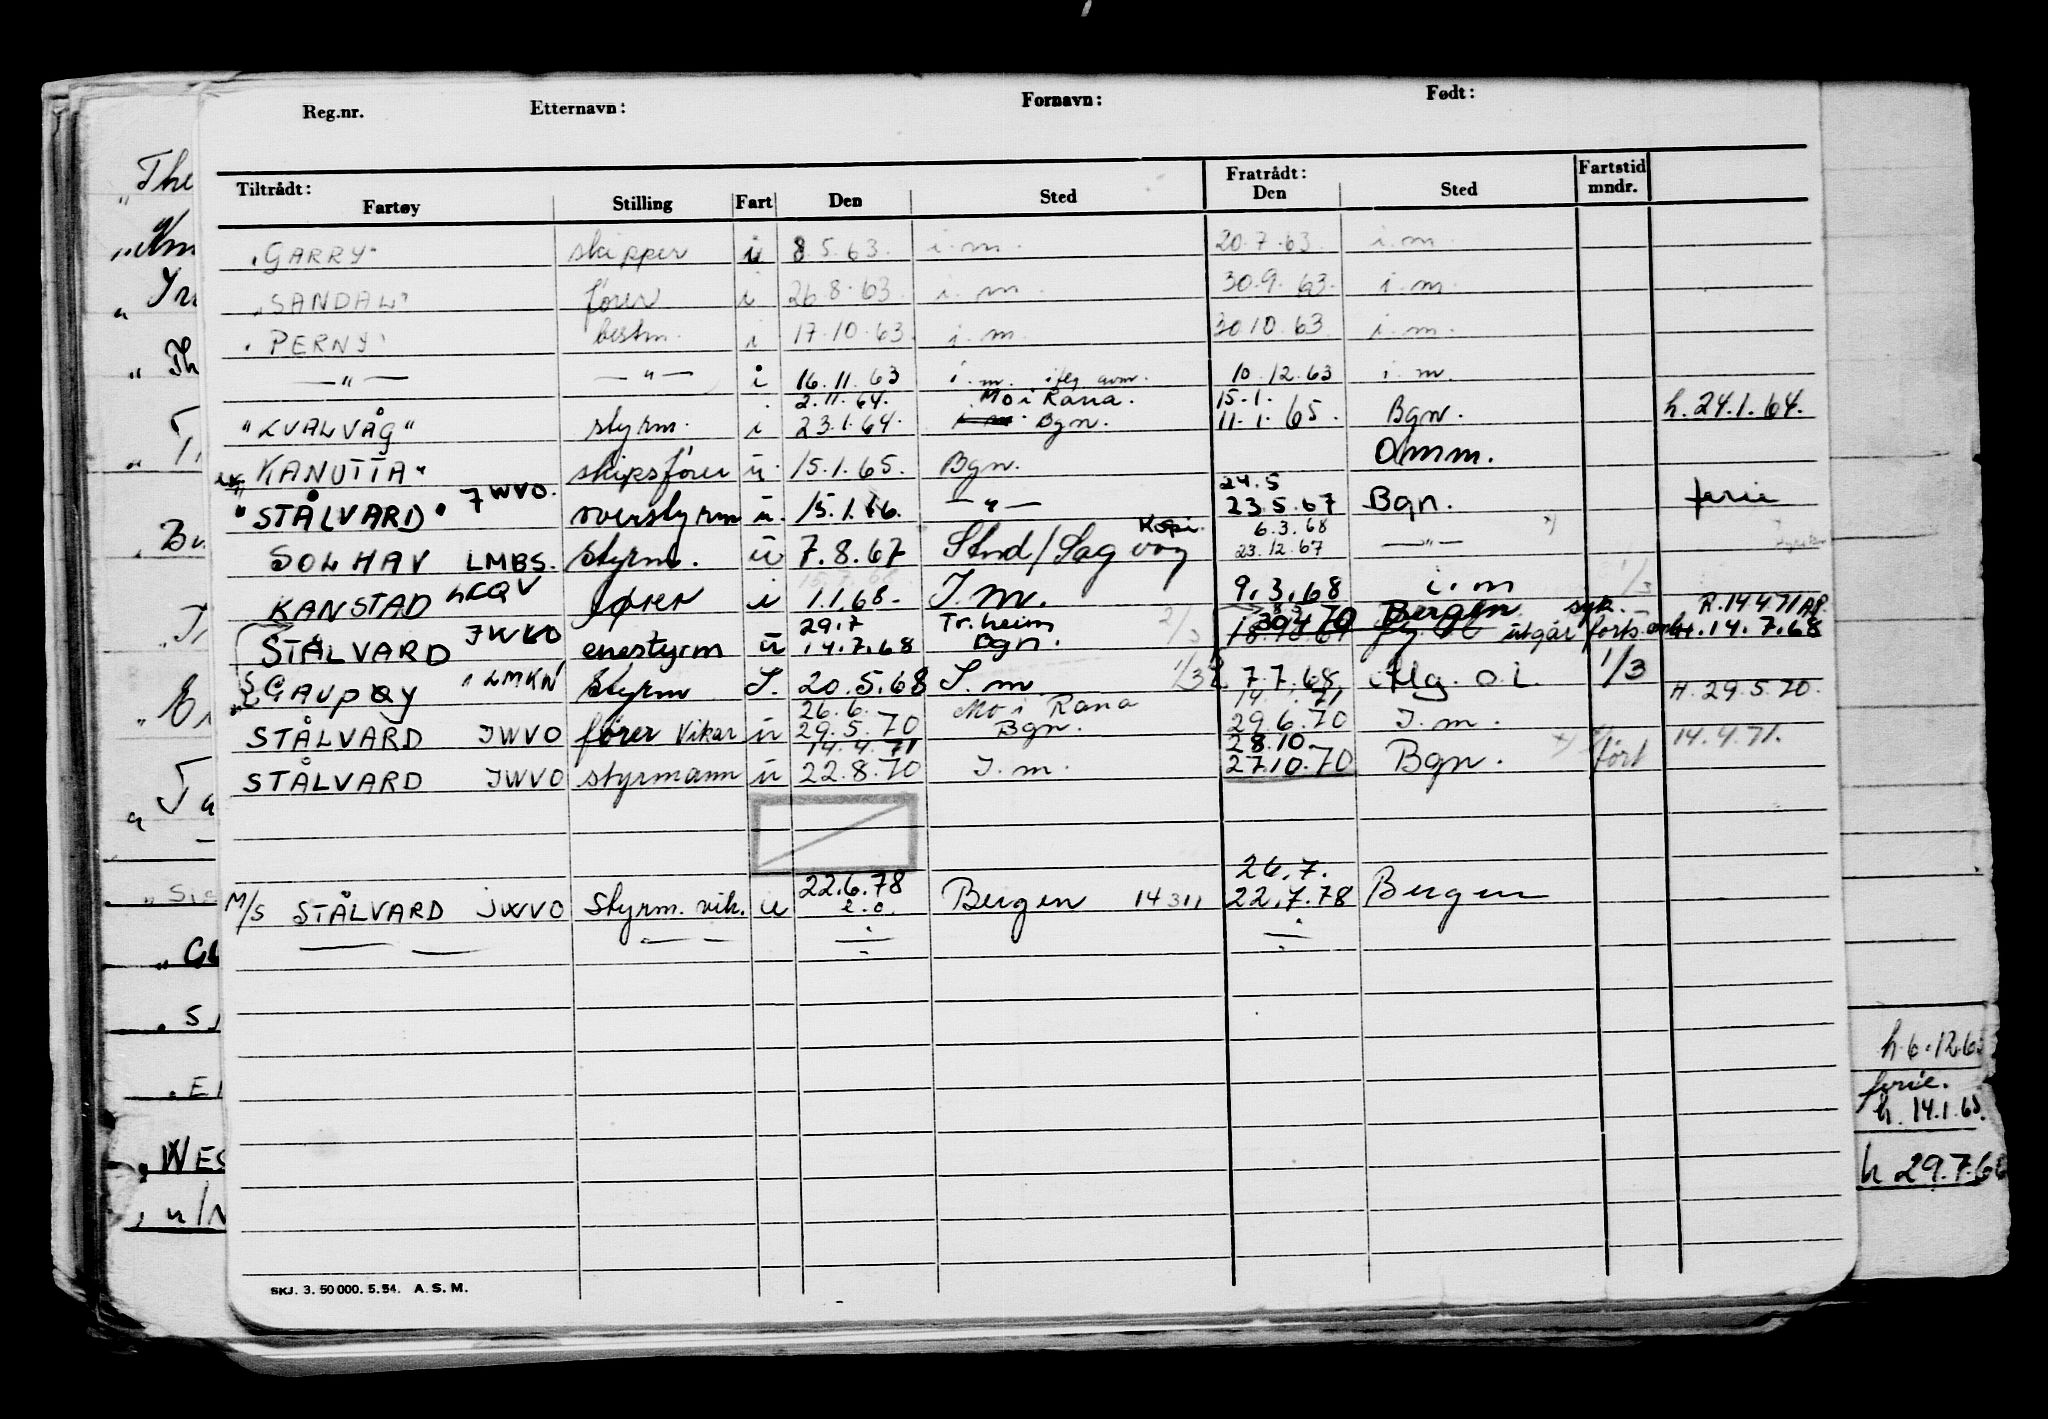 Reg.nr. Etternavn: Fornavn: Født:
Tiltrådt: Fratrådt: Fartstid
Fartøy Stilling Fart Den Sted Den Sted mndr.
"GARRY" skipper u 8.5.63. i.m. 20.7.63. i.m.
"SANDAL" fører i 26.8.63. i.m. 30.9.63. i.m.
"PERNY" bestm. i 17.10.63. i.m. 30.10.63. i.m.
— " — — " — i 16.11.63 i.m. iflg avm. 10.12.63 i.m.
2.11.64. Mo i Rana. 15.1.
"KVALVÅG" styrm. i 23.1.64. Bgn. 11.1.65. Bgn. h. 24.1.64.
"KANUTTA" skipsfører u. 15.1.65. Bgn. Omm.
24.5
"STÅLVARD" JWVO. overstyrm u. 15.1.66. — " — 23.5.67 Bgn. ferie
Kopi 6.3.68
SOLHAV LMBS. Styrm. u 7.8.67 Stnd/Sag våg 23.12.67 — " —
KANSTAD LCQV fører i 1.1.68. I.m. 9.3.68 i.m 1/3
29.7 Tr.heim 30.4.70 Bergen syk. A.14.4.71 AP.
STÅLVARD JWVO enestyrm u 14.7.68 Bgn. utgår forts. h. 14.7.68
GAUPØY LMKN Styrm I. 20.5.68 I.m. 1/3 7.7.68 iflg. o.l. 1/3
26.6. Mo i Rana H. 29.5.70.
STÅLVARD JWVO fører Vikar u 29.5.70 Bgn. 29.6.70 I.m.
14.4.71 28.10. 14.4.71.
STÅLVARD JWVO styrmann u 22.8.70 I.m. 27.10.70 Bgn. fort
22.6.78 26.7.
M/S STÅLVARD JWVO Styrm. vik. u e.o. Bergen 14311 22.7.78 Bergen
SKJ. 3. 50 000. 5.54. A. S. M.
h. 6.12.6
ferie.
h. 14.1.65.
h 29.7.66